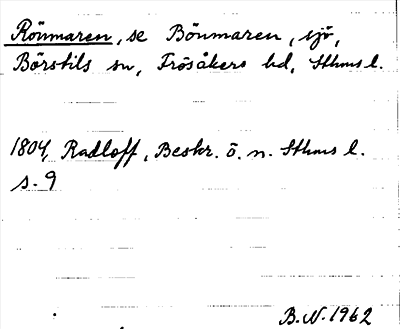 Rönmaren, se Bönmaren, sjö,
Börstils sn, Frösåkers hd, Sthms l.
1804, Radloff, Beskr. ö. n. Sthms l.
s. 9
B.N. 1962